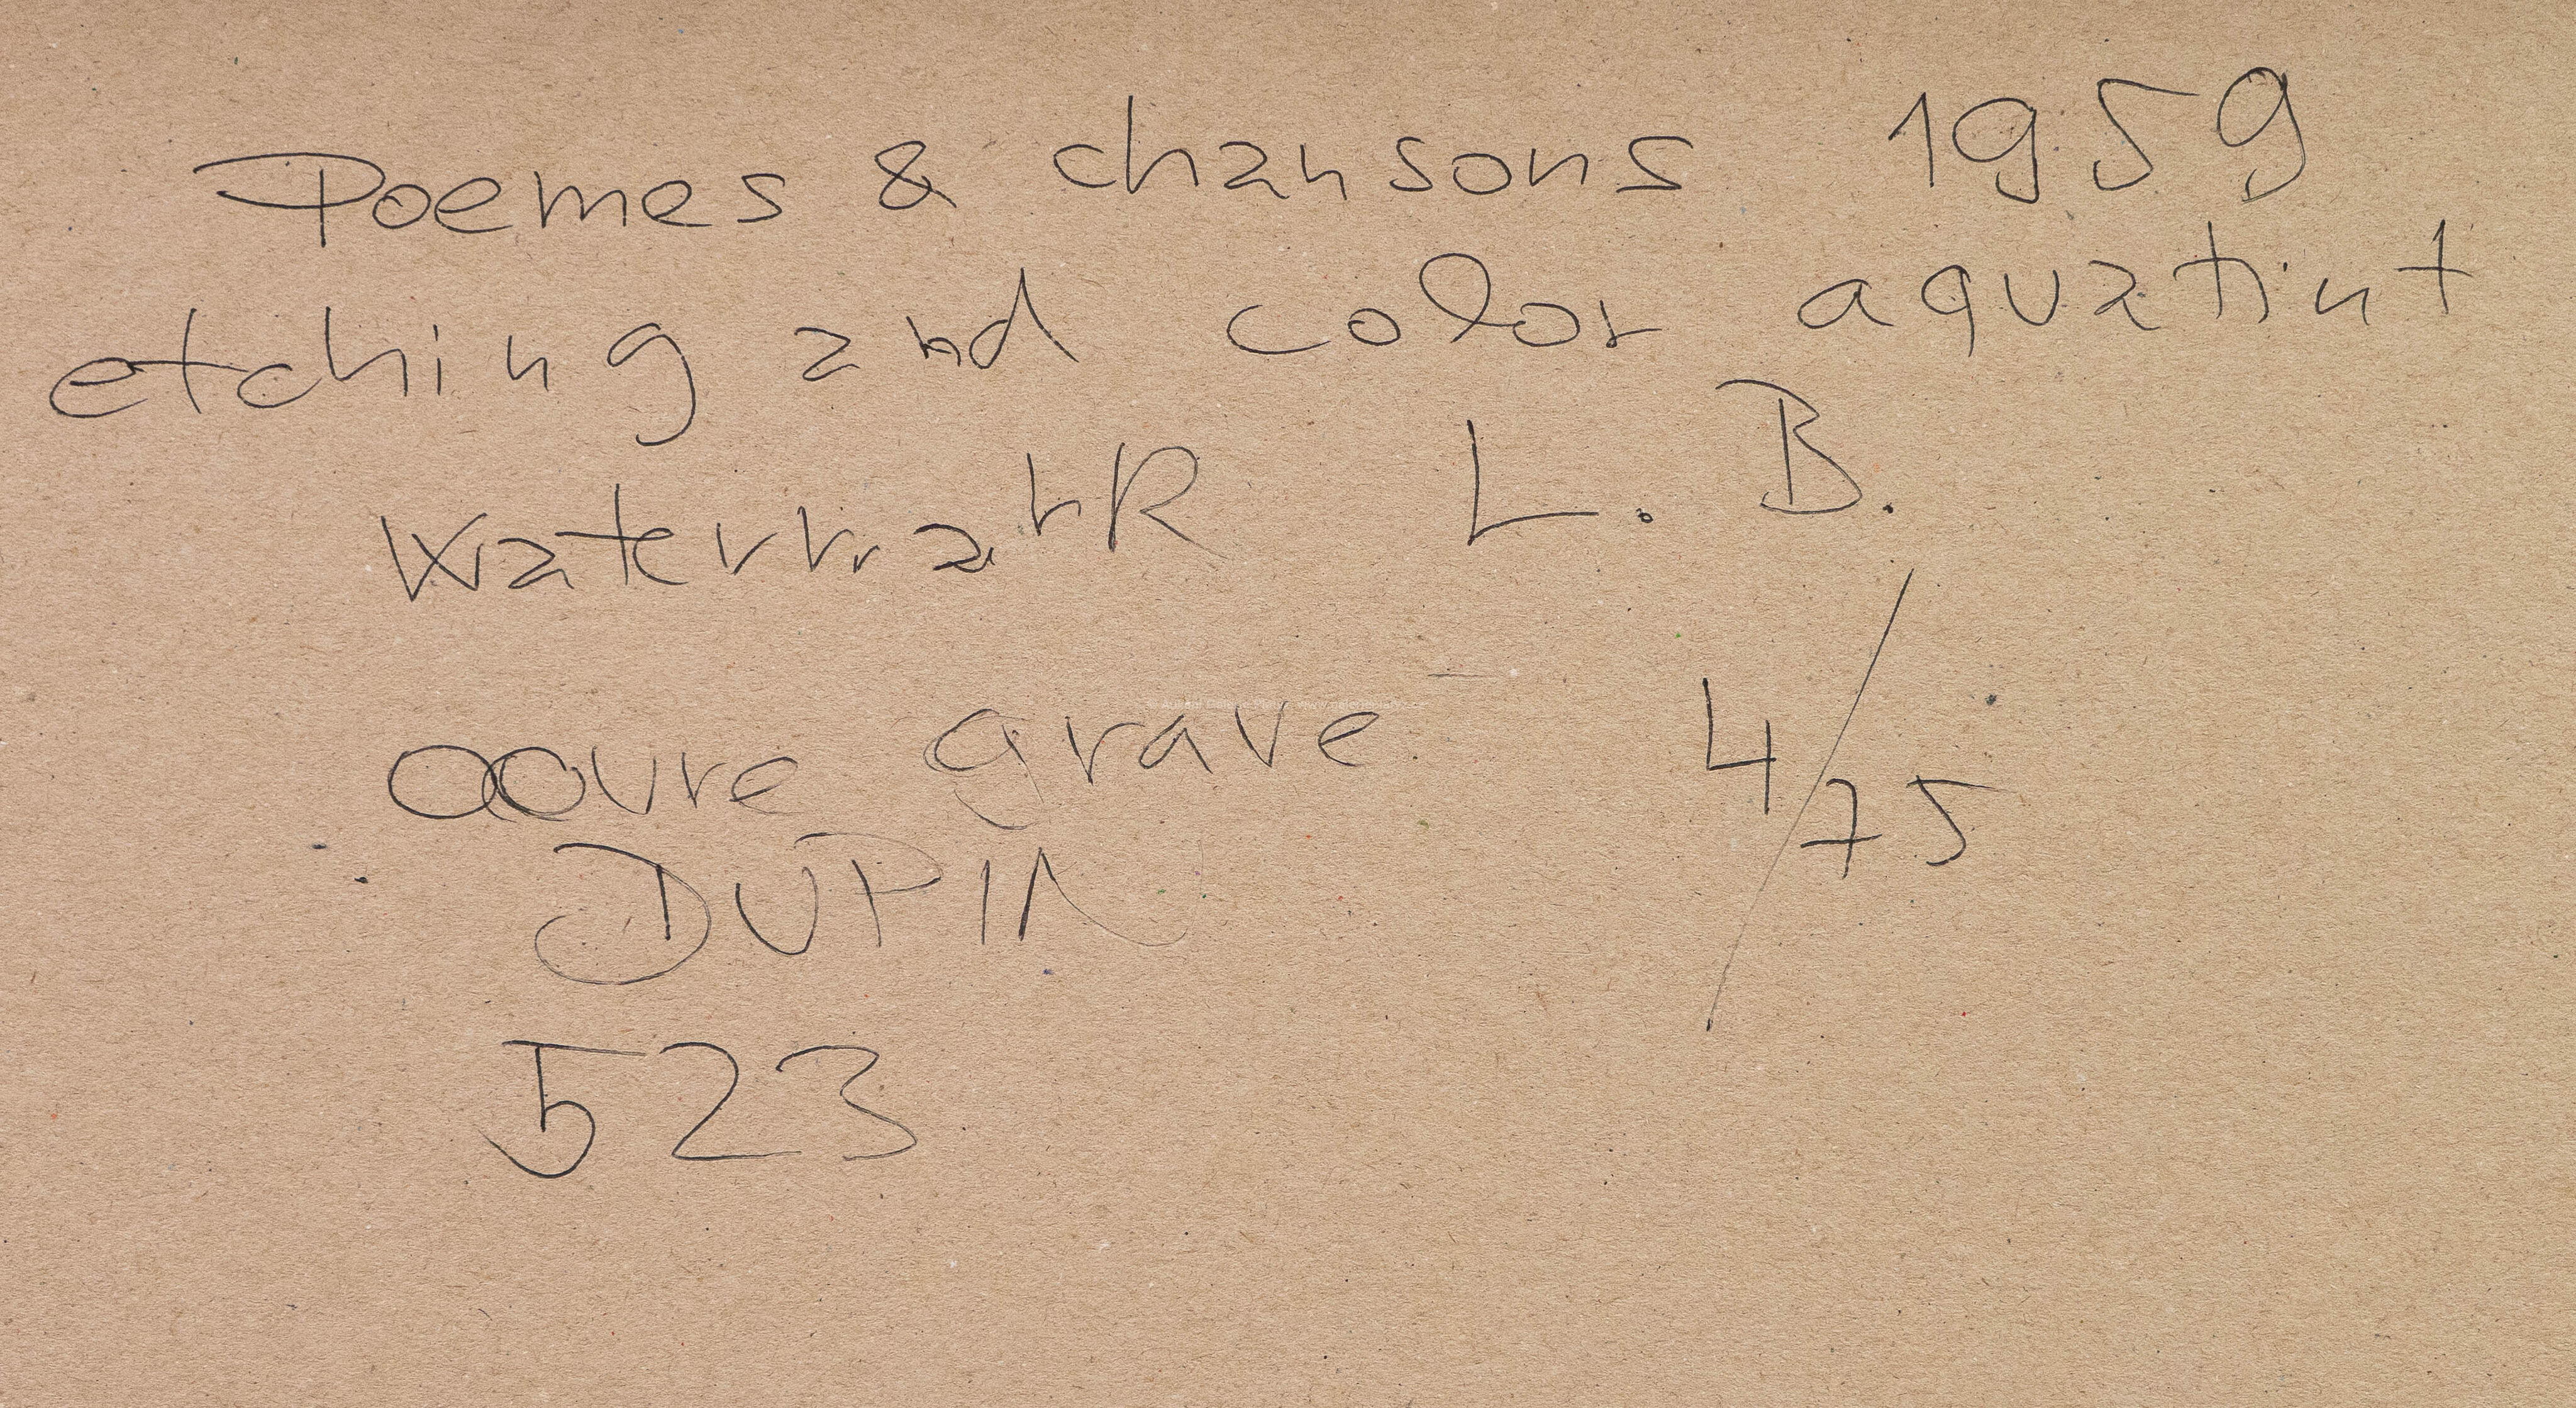 Poemes & chansons 1959
etching and color aquatint
watermark L. B.
oouvre grave 4/75
DUPIN
523